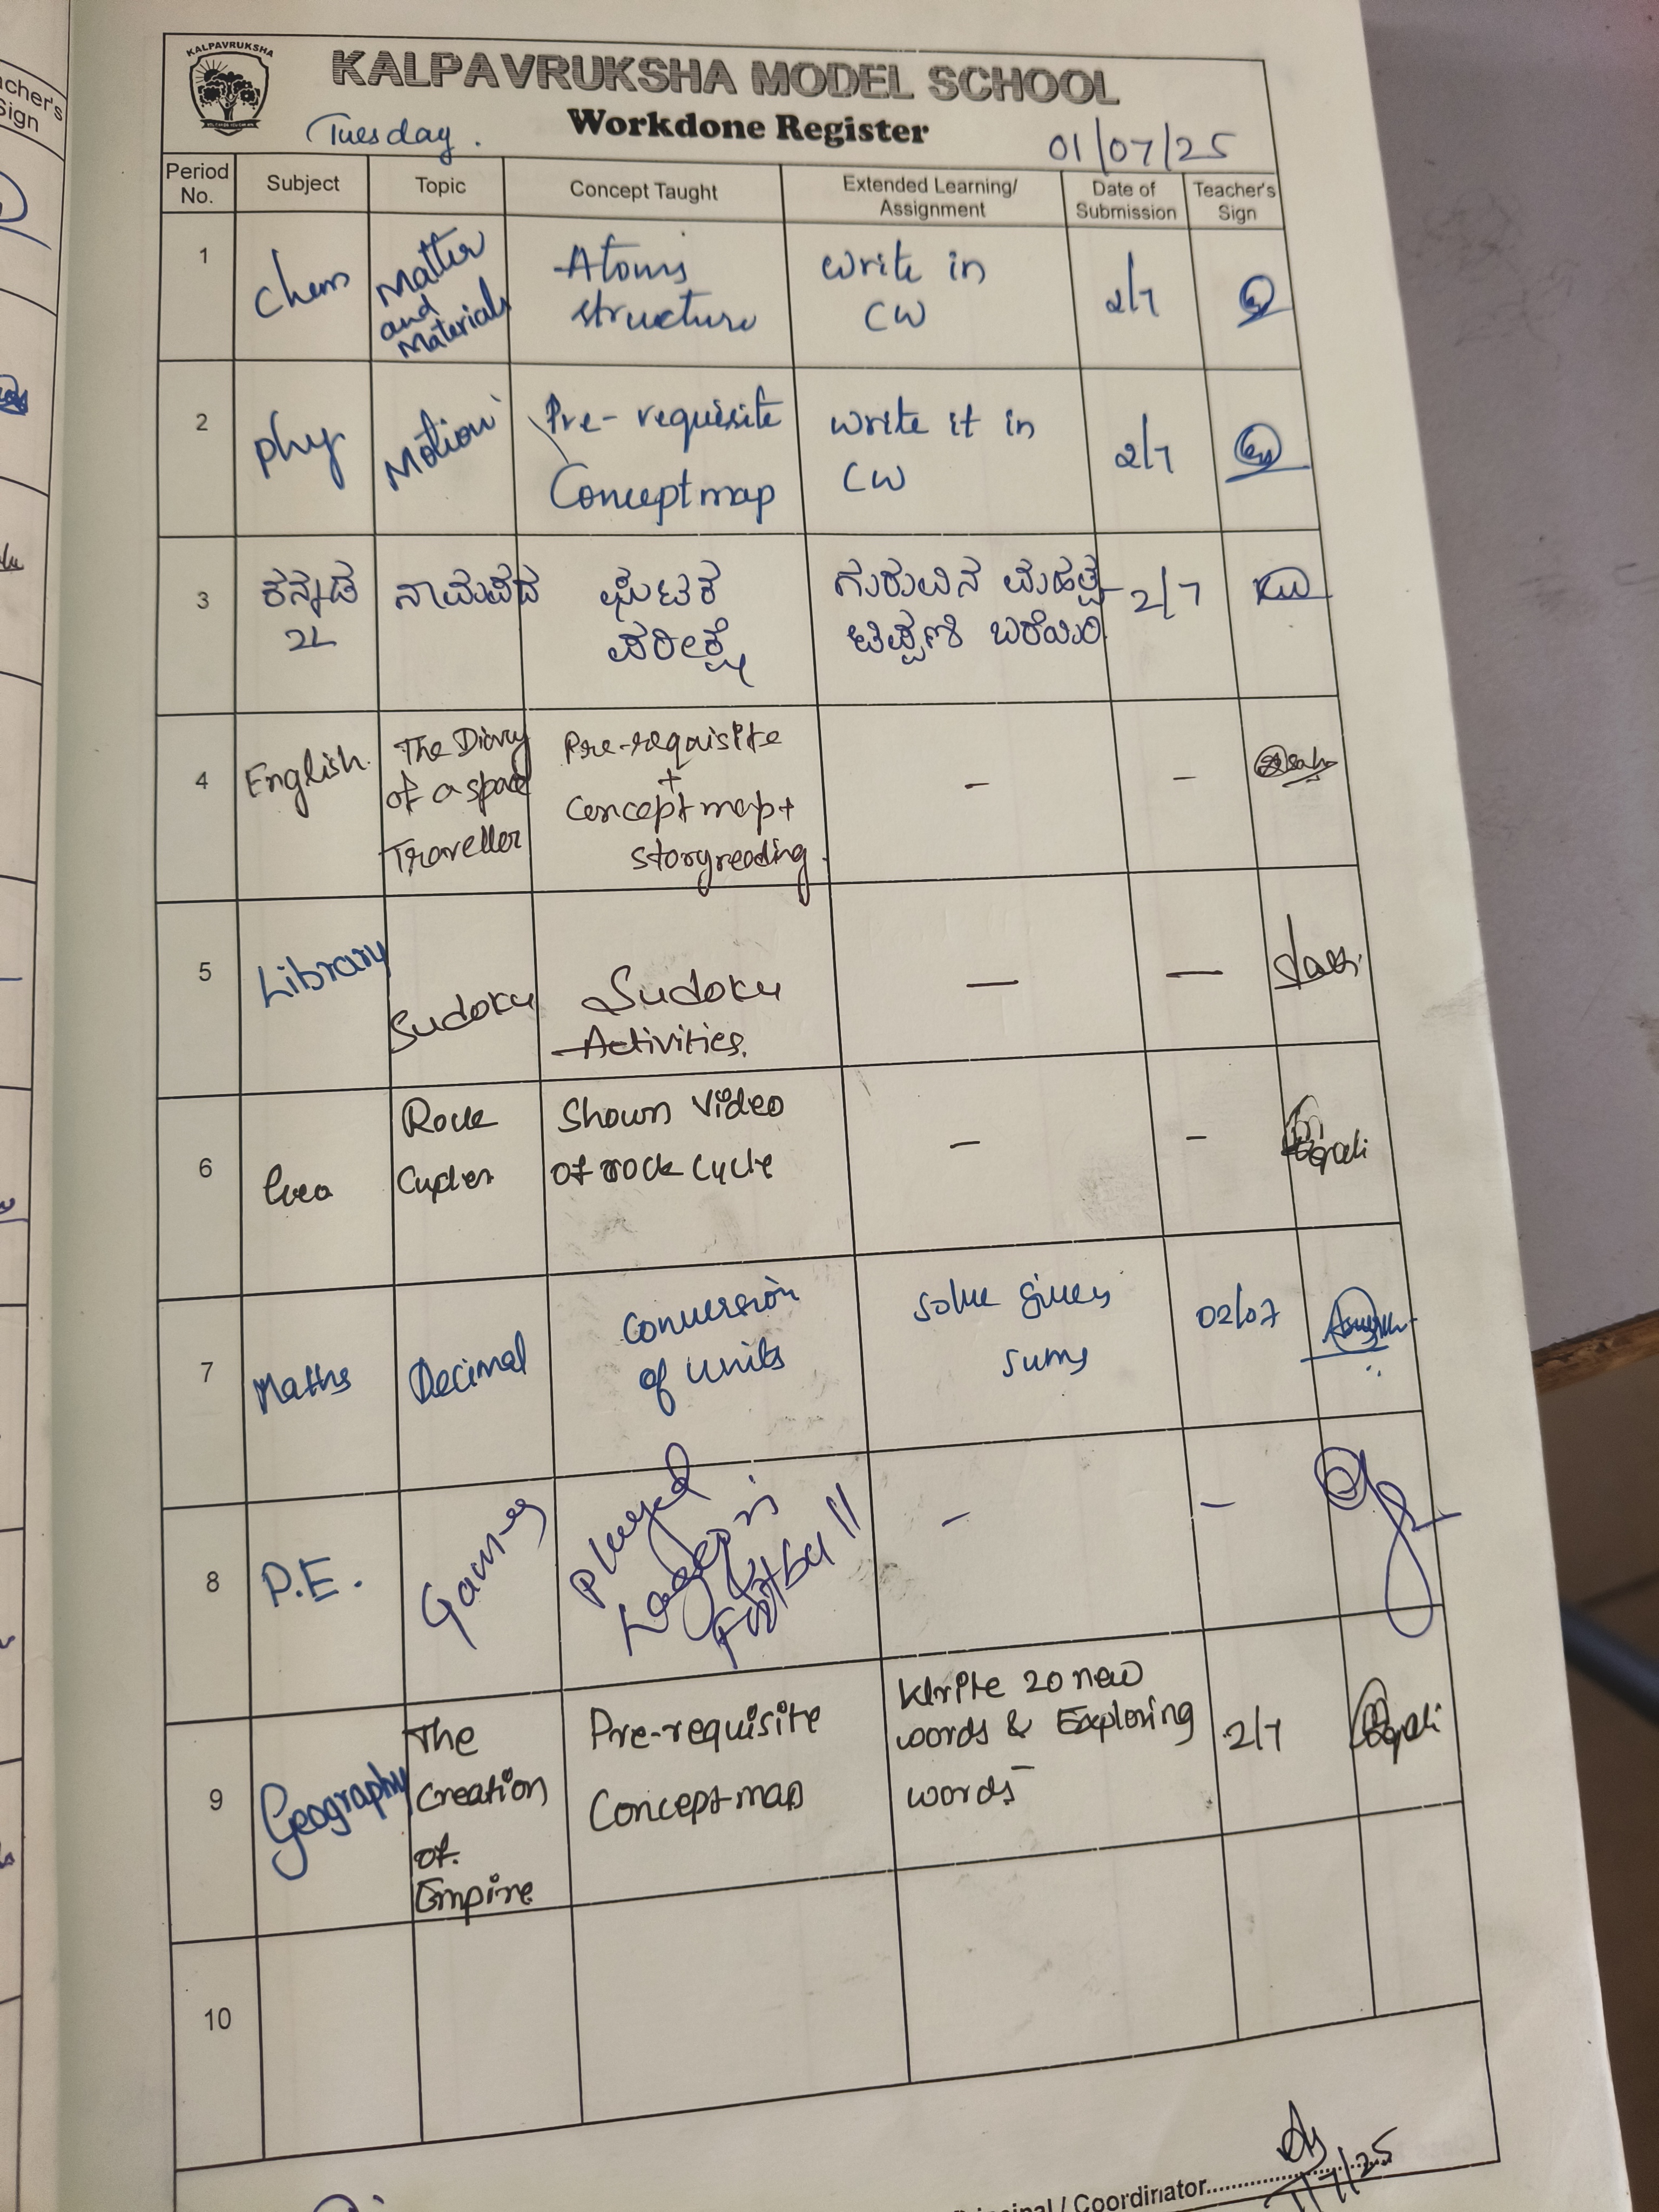 KALPAVRUKSHA
KALPAVRUKSHA MODEL SCHOOL
Workdone Register
Tuesday.
01/07/25
Period No.
Subject
Topic
Concept Taught
Extended Learning/ Assignment
Date of Submission
Teacher's Sign
1
Chem
Matter
and
Materials
Atoms
structure
write in
CW
2/7
2
phy
Motion
Pre-requisite
Concept map
write it in
CW
2/7
3
ಕನ್ನಡ
2L
ನಾಮಪದ
ಘಟಕ
ಪರೀಕ್ಷೆ
ಗುರುವಿನ ಮಹತ್ವ
ಟಿಪ್ಪಣಿ ಬರೆಯಿರಿ
2/7
4
English.
The Diary
of a space
Traveller
Pre-requisite
+
concept map+
storyreading.
-
-
5
Library
Sudoku
Sudoku
Activities.
—
—
6
Geo
Rock
Cycles
Shown Video
of rock cycle
-
-
7
Maths
Decimal
conversion
of units
solve given
sums
02/07
8
P.E.
Games
Played
Football
-
-
9
Geography
The
Creation
of.
Empire
Pre-requisite
Concept-map
Write 20 new
words & Exploring
words
2/7
10
/ Coordinator
/7/25
acher's
Sign